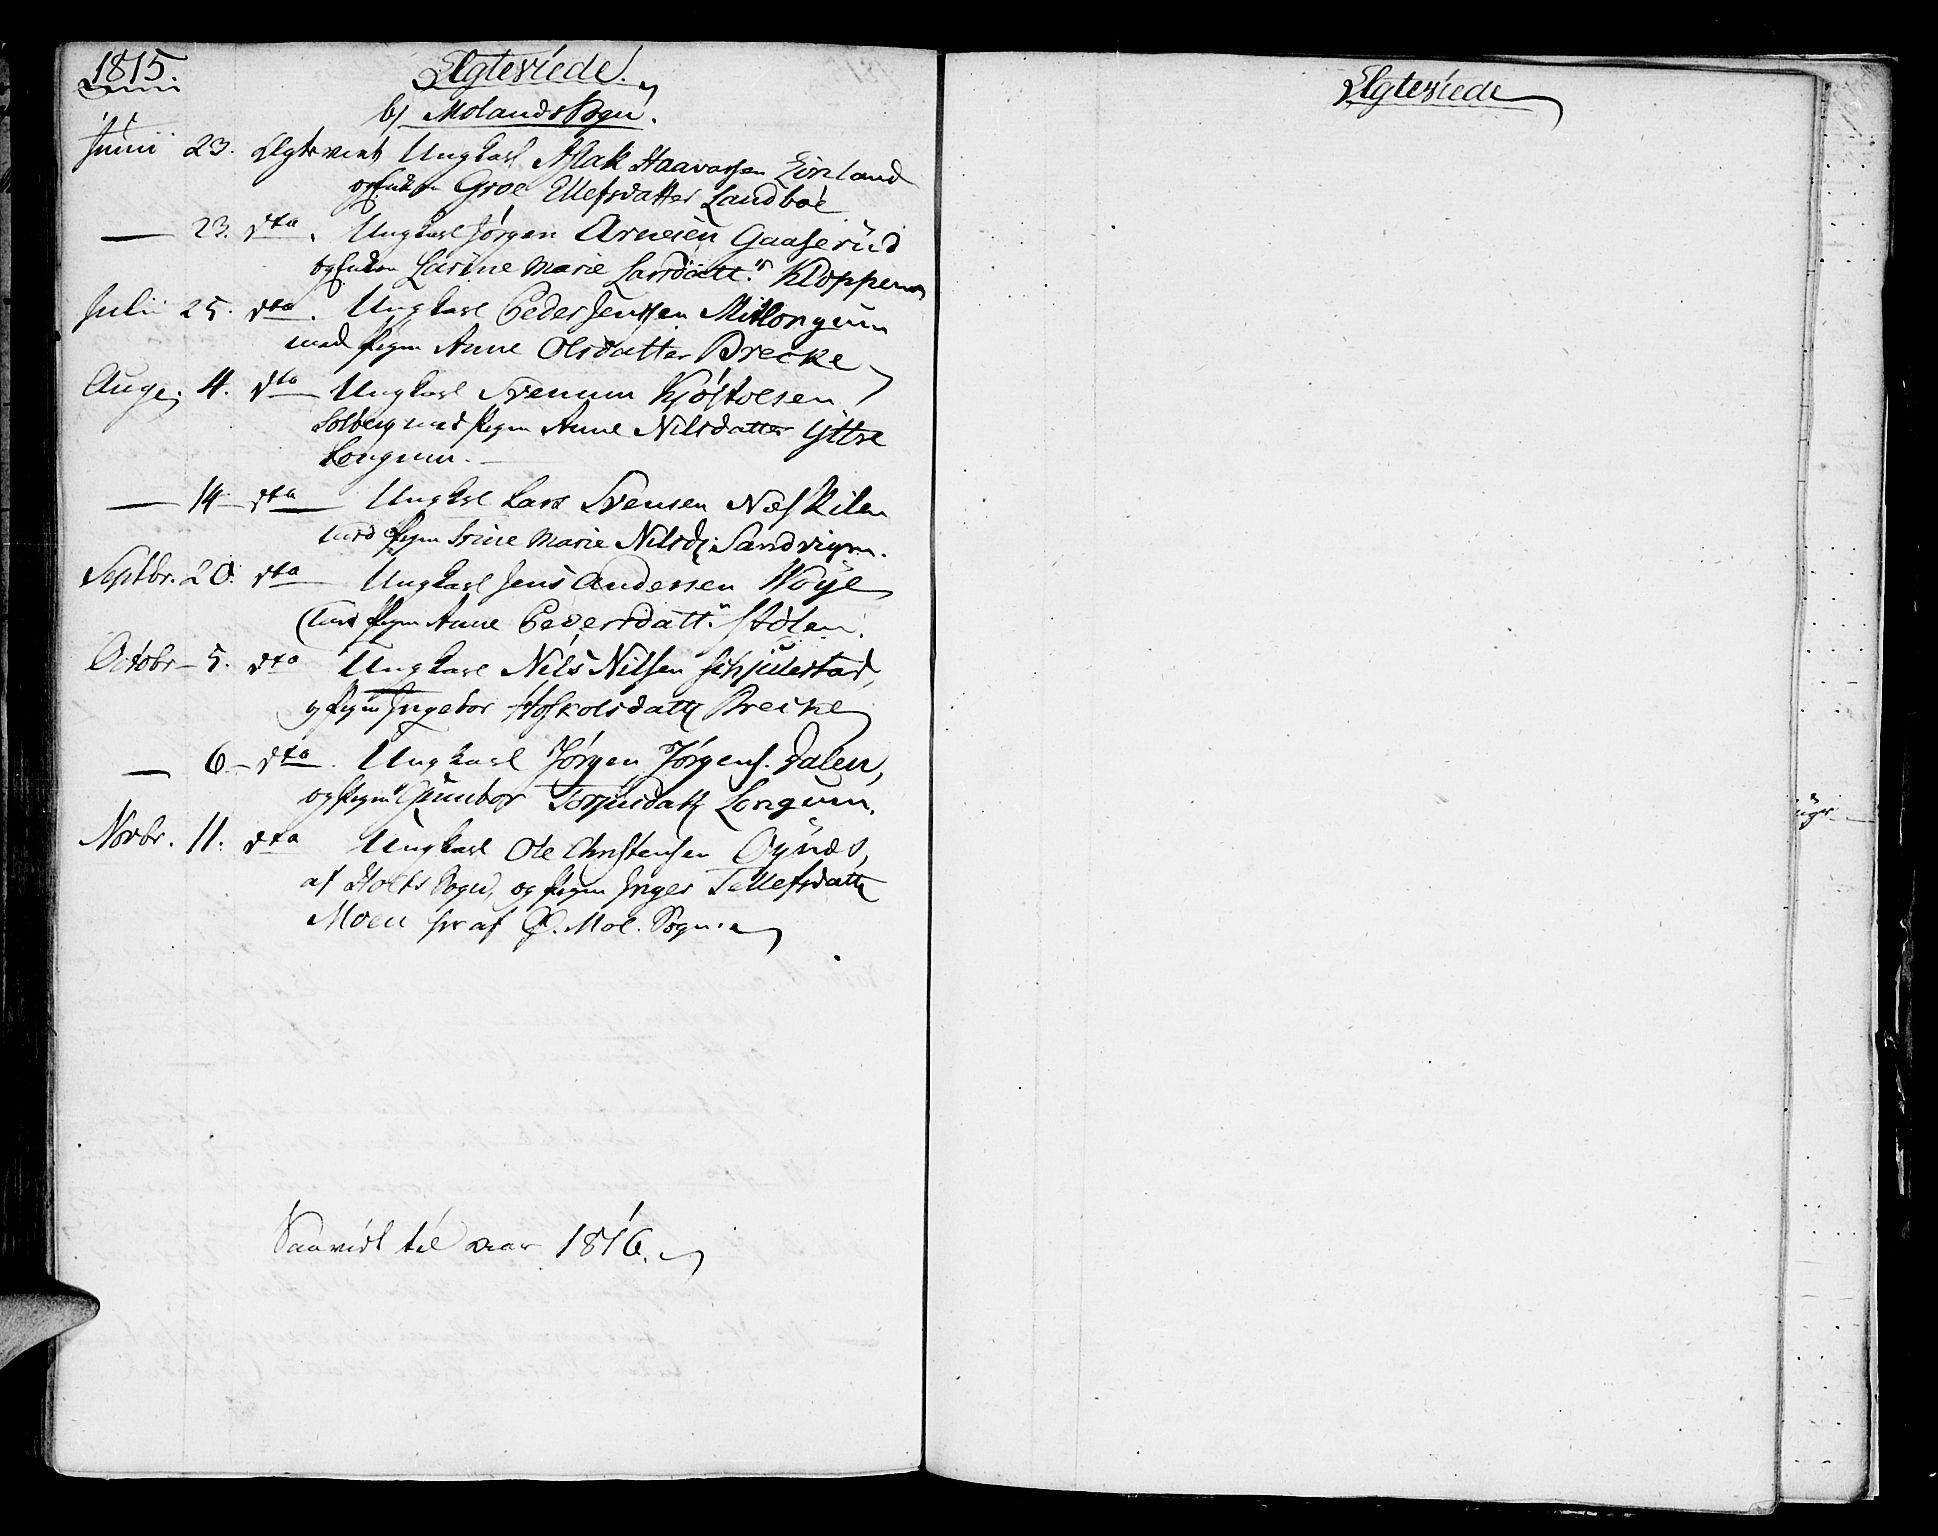 1815.
Ægteviede.
b) Molands Sogn.
Junii 23. Ægteviet Ungkarl Aslak Haavorsen Eivland
og Enken Groe Ellefsdatter Landbøe
— 23. dto. Ungkarl Jørgen Arnesen Gaaserud
og Enken Larine Marie Larsdatt.r Kloppene
Julii 25. dto. Ungkarl Peder Jenssen Mitlongum
med Pigen Anne Olsdatter Brecke
Aug. 4. dto Ungkarl Svenum Kjøstolsen
Solberg med Pigen Anne Nilsdatter Yttre
Longum.
— 14 dto Ungkarl Lars Svensen Næskilen
med Pigen Trine Marie Nilsd: Sandvigen.
Septbr. 20. dto Ungkarl Jens Andersen Woje
med Pigen Anne Pedersdatt.r Stølen.
Octobr 5. dto Ungkarl Nils Nilsen Schjulestad,
og Pigen Ingebor Hoskolsdatt Brecke
— 6 dto. Ungkarl Jørgen Jørgens. Dalen,
og Pigen Gunbor Torjusdatt Longum.
Novbr. 11. dto Ungkarl Ole Christensen Oynæs,
af Holts Sogn, og Pigen Inger Tellefsdatt
Moen her af Ø. Mol. Sogn.
Saavidt til aar 1816.
Ægteviede